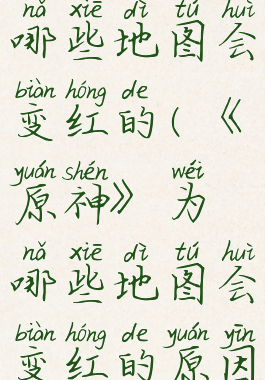 nǎ xiē dì tú huì
哪些地图会
biàn hóng de
变红的(《
yuán shén wéi
原神》为
nǎ xiē dì tú huì
哪些地图会
biàn hóng de yuán yīn
变红的原因